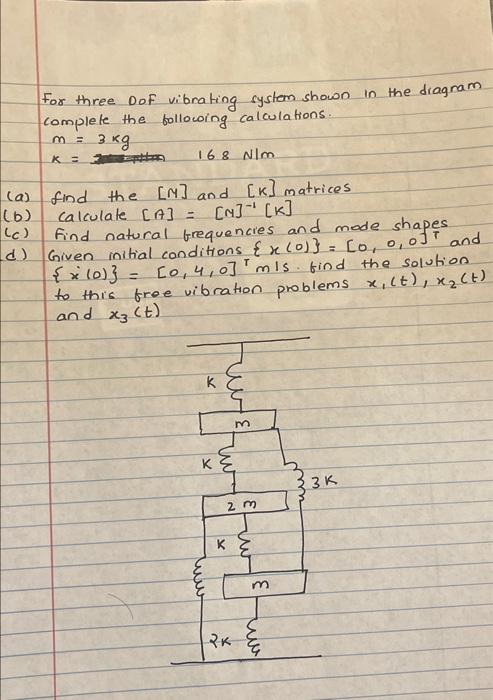 For three DOF vibrating system shown in the diagram
complete the following calculations.
m = 3 kg
K = 168 N/m
(a) find the [M] and [K] matrices
(b) calculate [A] = [M]⁻¹ [K]
(c) Find natural frequencies and mode shapes
d) Given initial conditions {x(0)} = [0, 0, 0]ᵀ and
{ẋ(0)} = [0, 4, 0]ᵀ m/s. find the solution
to this free vibration problems x₁(t), x₂(t)
and x₃(t)
K
m
K
3K
2m
K
m
2K